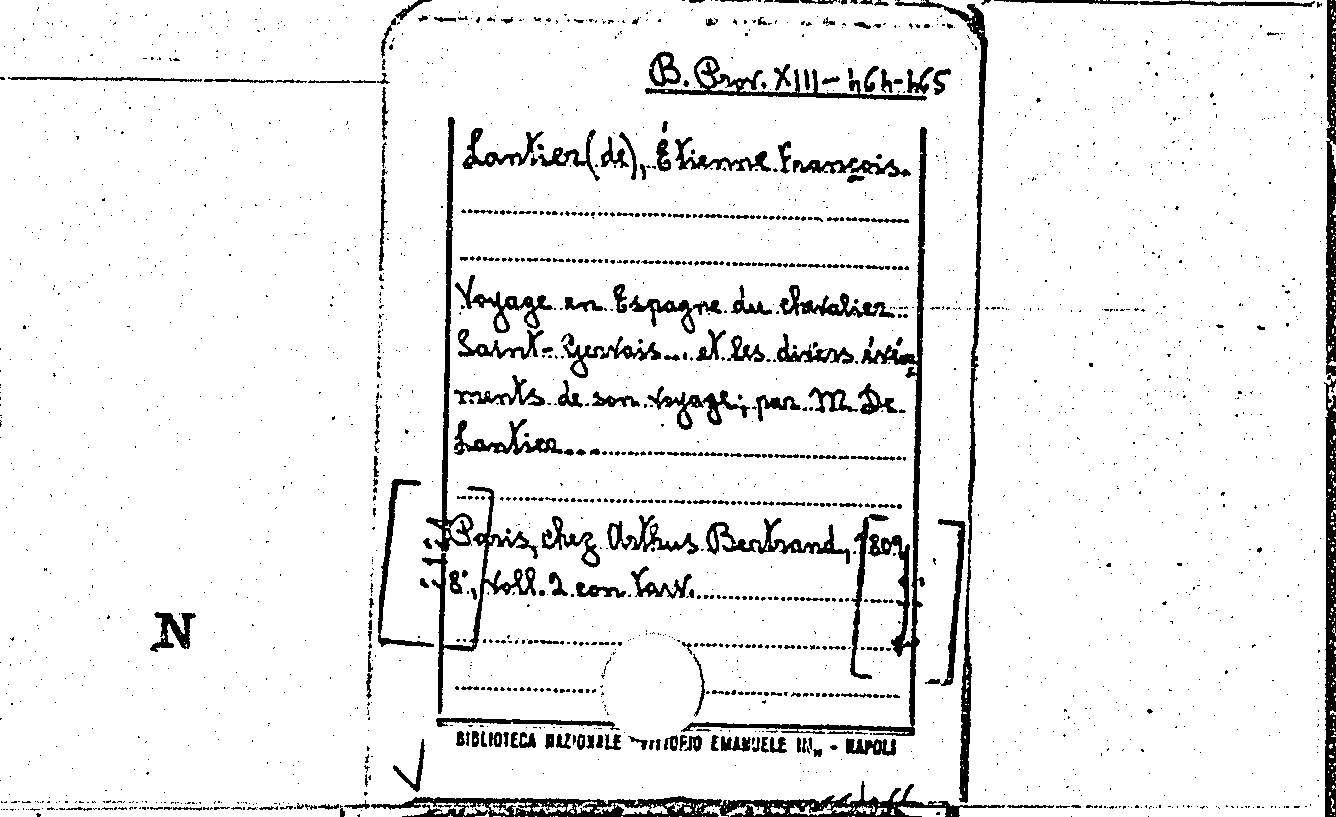 B. Prov. XIII - 464-465
Lantier (de), Étienne François.
Voyage en Espagne du chevalier
Saint-Gervais... et les divers évén
ments de son voyage; par M. De
Lantier...
Paris, chez Arthus Bertrand, 1809,
8°, voll. 2 con tavv.
N
BIBLIOTECA NAZIONALE "VITTORIO EMANUELE III„ - NAPOLI